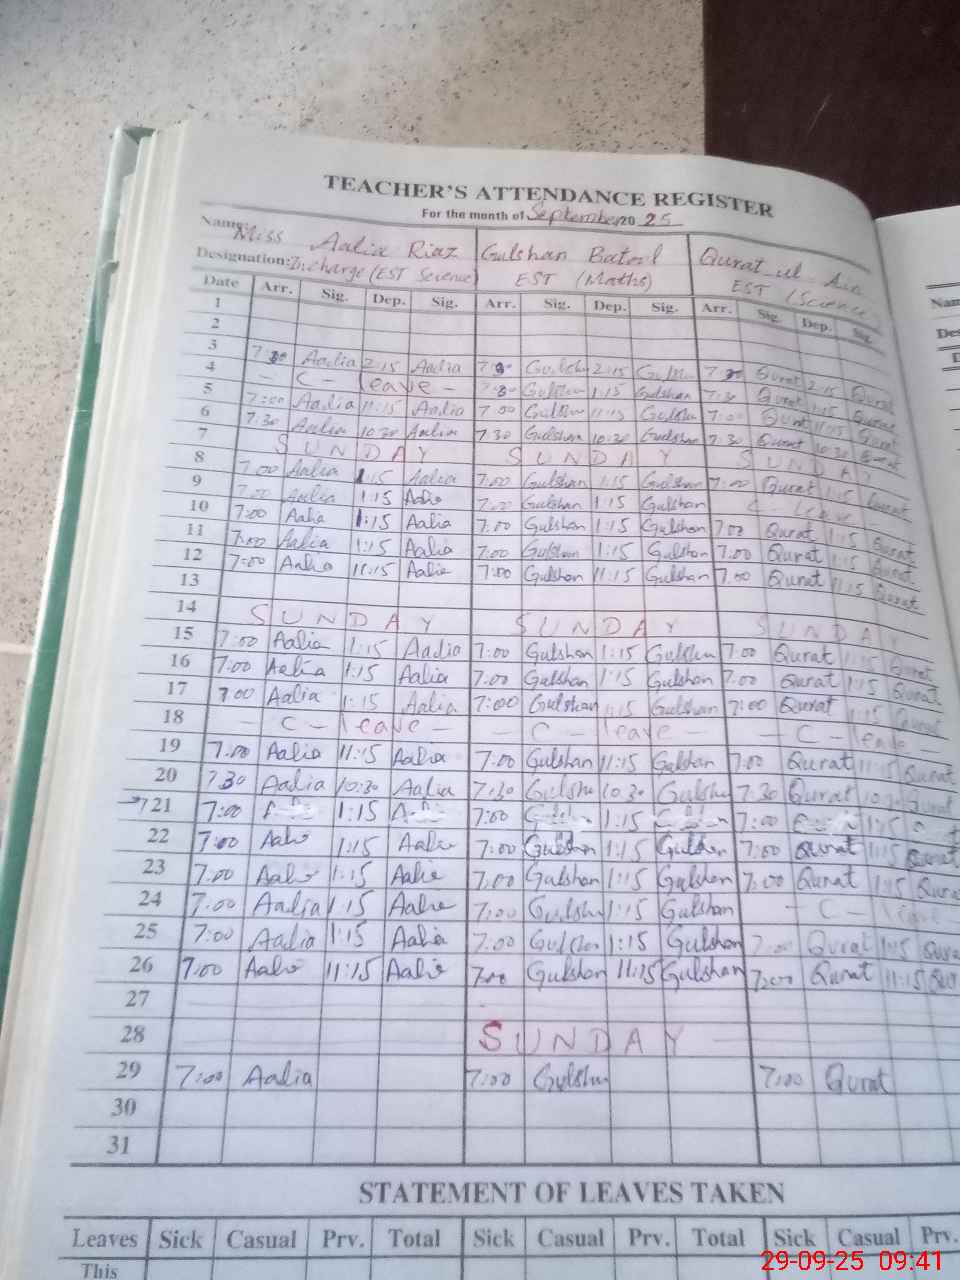 TEACHER'S ATTENDANCE REGISTER
For the month of September 2025
Name: Miss Aalia Riaz Gulshan Batool Qurat ul Ain
Designation: Incharge (EST Science) EST (Maths) EST (Science
Date Arr. Sig. Dep. Sig. Arr. Sig. Dep. Sig. Arr. Sig. Dep. Sig.
1
2
3 7:30 Aalia 2:15 Aalia 7:30 Gulshan 2:15 Gulshan 7:30 Qurat 2:15 Qurat
4 - C - leave - 7:30 Gulshan 1:15 Gulshan 7:30 Qurat 1:15 Qurat
5 7:00 Aalia 11:15 Aalia 7:00 Gulshan 11:15 Gulshan 7:00 Qurat 11:15 Qurat
6 7:30 Aalia 10:30 Aalia 7:30 Gulshan 10:30 Gulshan 7:30 Qurat 10:30 Qurat
7 SUNDAY SUNDAY SUNDAY
8 7:00 Aalia 1:15 Aalia 7:00 Gulshan 1:15 Gulshan 7:00 Qurat 1:15 Qurat
9 7:00 Aalia 1:15 Aalia 7:00 Gulshan 1:15 Gulshan C - leave
10 7:00 Aalia 1:15 Aalia 7:00 Gulshan 1:15 Gulshan 7:00 Qurat 1:15 Qurat
11 7:00 Aalia 1:15 Aalia 7:00 Gulshan 1:15 Gulshan 7:00 Qurat 1:15 Qurat
12 7:00 Aalia 11:15 Aalia 7:00 Gulshan 11:15 Gulshan 7:00 Qurat 11:15 Qurat
13
14 SUNDAY SUNDAY SUNDAY
15 7:00 Aalia 1:15 Aalia 7:00 Gulshan 1:15 Gulshan 7:00 Qurat 1:15 Qurat
16 7:00 Aalia 1:15 Aalia 7:00 Gulshan 1:15 Gulshan 7:00 Qurat 1:15 Qurat
17 7:00 Aalia 1:15 Aalia 7:00 Gulshan 1:15 Gulshan 7:00 Qurat 1:15 Qurat
18 - C - leave - - C - leave - - C - leave -
19 7:00 Aalia 11:15 Aalia 7:00 Gulshan 11:15 Gulshan 7:00 Qurat 11:15 Qurat
20 7:30 Aalia 10:30 Aalia 7:30 Gulshan 10:30 Gulshan 7:30 Qurat 10:30 Qurat
21 7:00 1:15 7:00 1:15 7:00 1:15
22 7:00 Aalia 1:15 Aalia 7:00 Gulshan 1:15 Gulshan 7:00 Qurat 1:15 Qurat
23 7:00 Aalia 1:15 Aalia 7:00 Gulshan 1:15 Gulshan 7:00 Qurat 1:15 Qura
24 7:00 Aalia 1:15 Aalia 7:00 Gulshan 1:15 Gulshan - C - leave -
25 7:00 Aalia 1:15 Aalia 7:00 Gulshan 1:15 Gulshan 7:00 Qurat 1:15 Qura
26 7:00 Aalia 11:15 Aalia 7:00 Gulshan 11:15 Gulshan 7:00 Qurat 11:15 Qu
27
28 SUNDAY
29 7:00 Aalia 7:00 Gulshan 7:00 Qurat
30
31
STATEMENT OF LEAVES TAKEN
Leaves Sick Casual Prv. Total Sick Casual Prv. Total Sick Casual Prv.
This
29-09-25 09:41